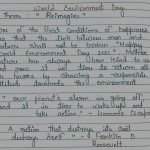 World Environment Day
Theme - "Reimagine
"One of the first conditions of happiness
is that the link between man and
nature shall not be broken "Happy
World Environment Day 2021" Mother
nature has always been kind to us
and now it is our time to return all
the favours by showing responsible
attitude towards the environment
our planet's alarm is going off
and it is time to wake up and
take action" - Leonardo Dicaprio
"A nation that destroys its soil
destroys itself" - Franklin D
Roosevelt